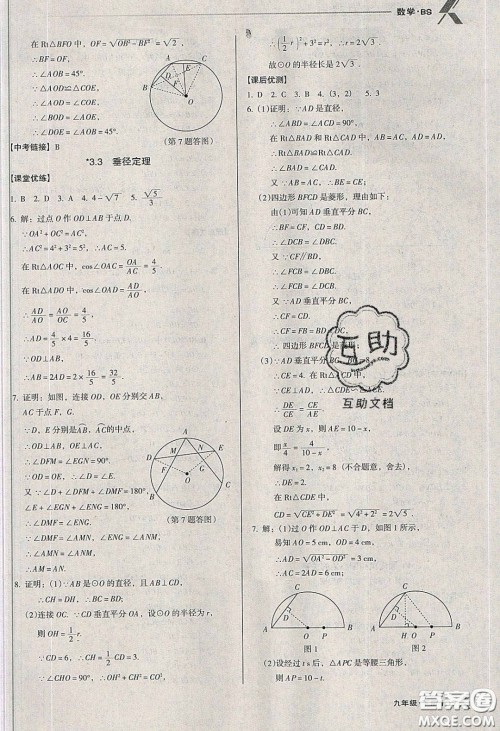 数学·BS
在 Rt△BFO 中，OF=√(OB²−BF²)=√2，
∴∠AOB=45°.
∵△AOD≌△COE，
∴∠AOD=∠COE，
∴∠AOC=∠DOE，
∵BF=OF，
∴∠BOF=45°，
∴∠DOE=∠AOB=45°.
（第 7 题答图）
【中考链接】 B
*3.3 垂径定理
【课堂优练】
1. B 2. D 3. A 4. 4−√7 5. √5/3
6. 解：过点 O 作 OD⊥AB 于点 D.
∵OA²+OC²=AC²，
∴AC²=4²+3²=5²，∴AC=5.
在 Rt△OAC 中，cos∠OAC=OA/AC=4/5，
在 Rt△ADO 中，cos∠OAD=AD/AO，
∴AD/AO=AO/OC=4/5，
∴AD=4/5×4=16/5.
∵OD⊥AB，
∴AB=2AD=2×16/5=32/5.
7. 证明：如图，连接 OD，OE 分别交 AB，
AC 于点 F，G.
∵D，E 分别是AB，AC的中点，
∴OD⊥AB，OE⊥AC，
∴∠DFM=∠EGN=90°.
∵OD=OE，∴∠D=∠E.
又∵∠D+∠DFM+∠DMF=180°，
∠E+∠EGN+∠ENG=180°，
∴∠DMF=∠ENG.
∵∠DMF=∠AMN，∠ENG=∠ANM，
∴∠AMN=∠ANM，
∴AM=AN.
（第 7 题答图）
8. 证明：（1）∵AB 是⊙O 的直径，且 AB⊥CD，
∴CH=DH，∴BC=BD.
（2）连接 OC. ∵CD 垂直平分 OA，设⊙O 的半径为 r，
则 OH=1/2 r.
∵CD=6，∴CH=1/2 CD=3.
∵∠CHO=90°，∴OH²+CH²=CO²，
∴(1/2 r)²+3²=r²，∴r=2√3.
故⊙O 的半径长是 2√3.
【课后优测】
1. D 2. C 3. B 4. (3，2) 5. 3
6. （1）证明：∵AD 是直径，
∴∠ABD=∠ACD=90°.
在 Rt△BAD 和 Rt△CAD 中，
AB=AC，AD=AD，
∴Rt△BAD≌Rt△CAD，
∴∠BAD=∠CAD.
又∵AB=AC，∴BE=CE.
（2）四边形 BFCD 是菱形，理由：
由（1）可知 AD 垂直平分 BC，
∴BF=CF，BD=CD，
∴∠DCB=∠DBC.
又∵CF∥BD，
∴∠FCB=∠DBC，
∴∠FCB=∠DCB.
又∵AD 垂直平分 BC，
∴CF=CD.
∴BF=CF=CD=BD，
∴四边形 BFCD 是菱形.
（3）∵AD 垂直平分 BC，BC=8，
∴CE=4. 在 Rt△
∴DE/CE=CE/AE
设 DE 为 x，则 AE=10−x，
即x/4=4/(10−x)，
解得 x₁=2，x₂=8（不合题意，舍去），
∴DE=2.
在 Rt△CDE 中，
CD=√(CE²+DE²)=√(4²+2²)=2√5.
7. 解：（1）过 O 作 OD⊥AC 于 D，如图 1 所示，
易知 AO=5 cm，OD=4 cm，
∴AD=√(OA²−OD²)=3 cm，
∴AC=2AD=6 cm.
图 1
图 2
（2）设经过 t s 后，△APC 是等腰三角形，
则 AP=10−t.
互助
互助文档
九年级·
答案圈
MXQE.COM